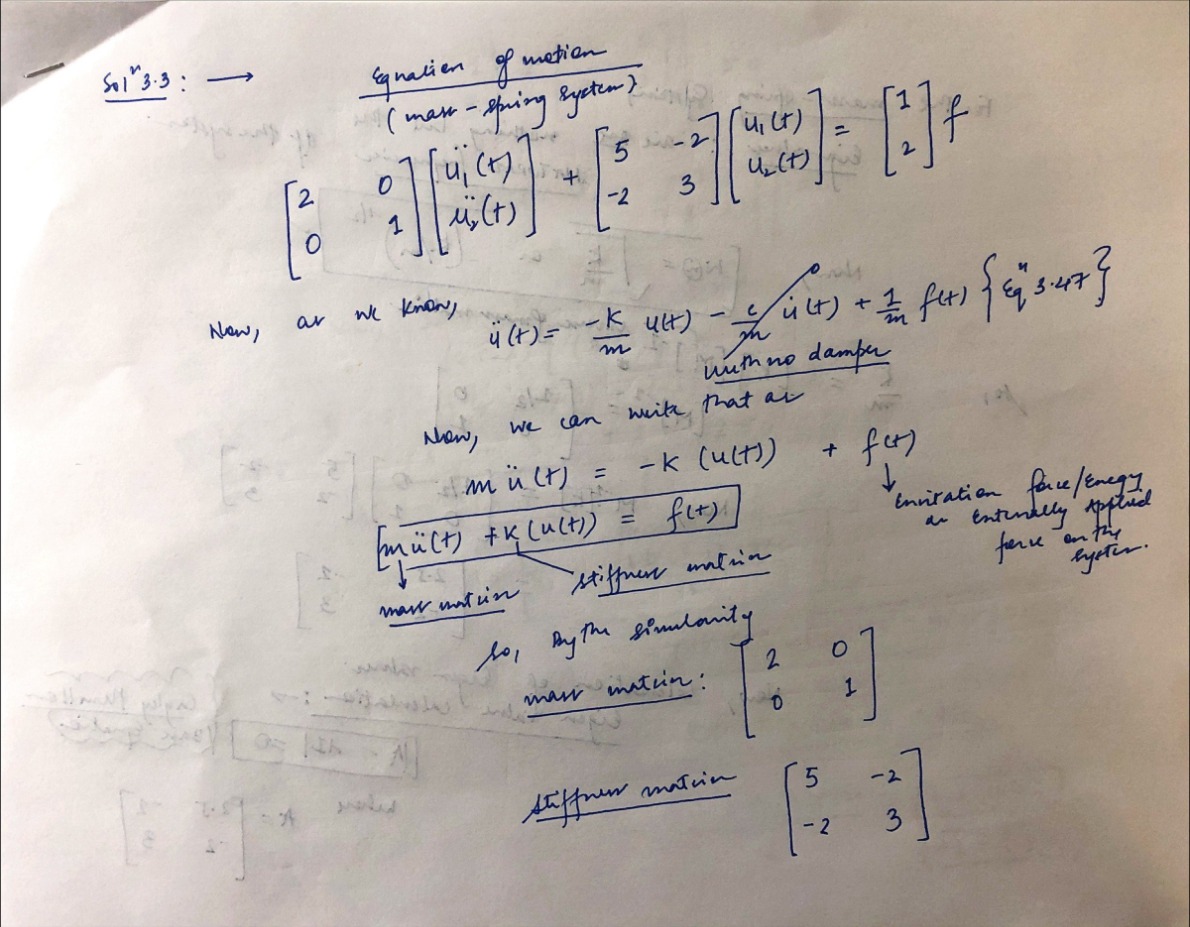 Solⁿ 3.3 : ⟶ Equation of motion
(mass-spring system)
[2 0; 0 1] [ü₁(t); ü₂(t)] + [5 -2; -2 3] [u₁(t); u₂(t)] = [1; 2] f
Now, as we know, ü(t) = -K/m u(t) - c/m u̇(t) + 1/m f(t) {Eqⁿ 3.47}
0
with no damper
Now, we can write that as
m ü(t) = -K (u(t)) + f(t)
[mü(t) + K(u(t)) = f(t)]
Excitation force/Energy
or Externally Applied
force on the
system.
mass matrix
stiffness matrix
So, By the similarity
mass matrix : [2 0; 0 1]
stiffness matrix [5 -2; -2 3]